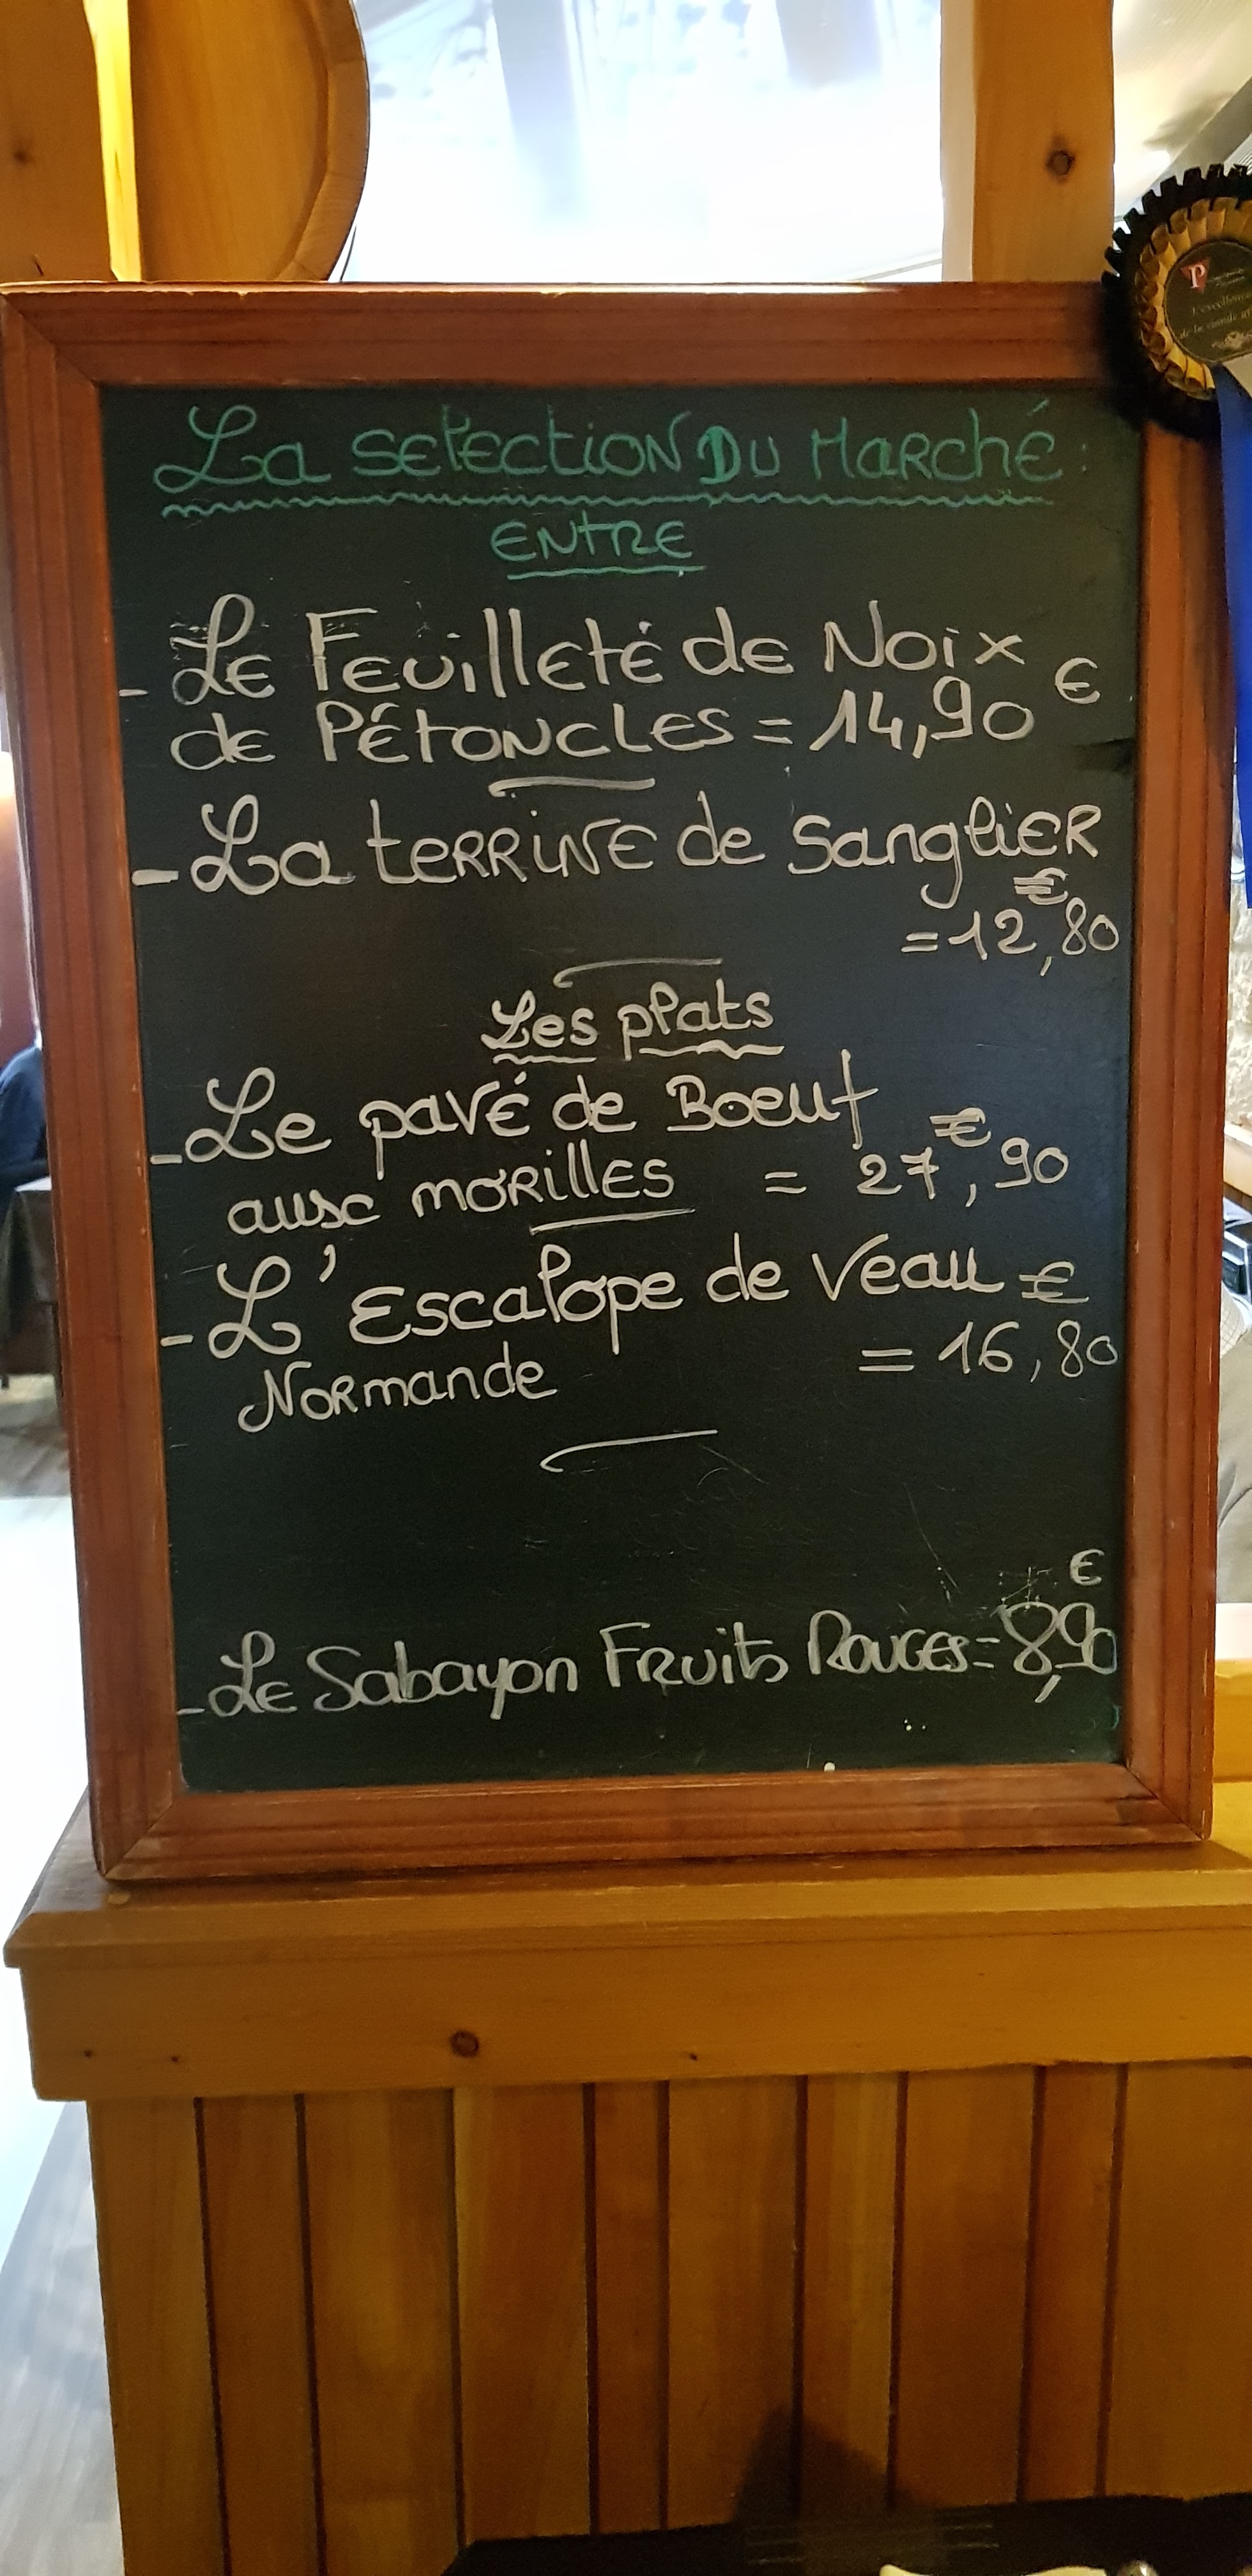 La selection Du Marché :
ENTRE
- Le Feuilleté de Noix €
de Pétoncles = 14,90
- La terrine de Sanglier
€
= 12,80
Les plats
- Le pavé de Boeuf €
aux morilles = 27,90
- L'Escalope de Veau €
Normande = 16,80
€
- Le Sabayon Fruits Rouges = 8,90
P
L'excellence
de la viande